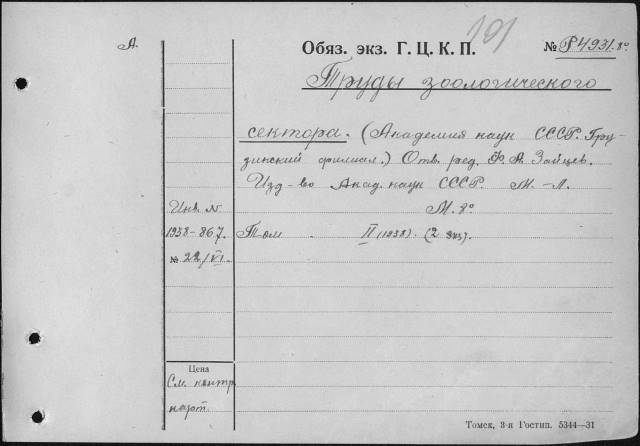 191
А.
Обяз. экз. Г. Ц. К. П.
№ Р4931. 8°
Труды зоологического
сектора. (Академия наук СССР. Гру-
зинский филиал.) Отв. ред. Ф. А. Зайцев.
Изд-во Акад. наук СССР. М.-Л.
Инв. № М. 8°
1938-867. Том II (1938). (2 экз).
№ 22/VI.
Цена
См. контр.
карт.
Томск, 3-я Гостип. 5344—31